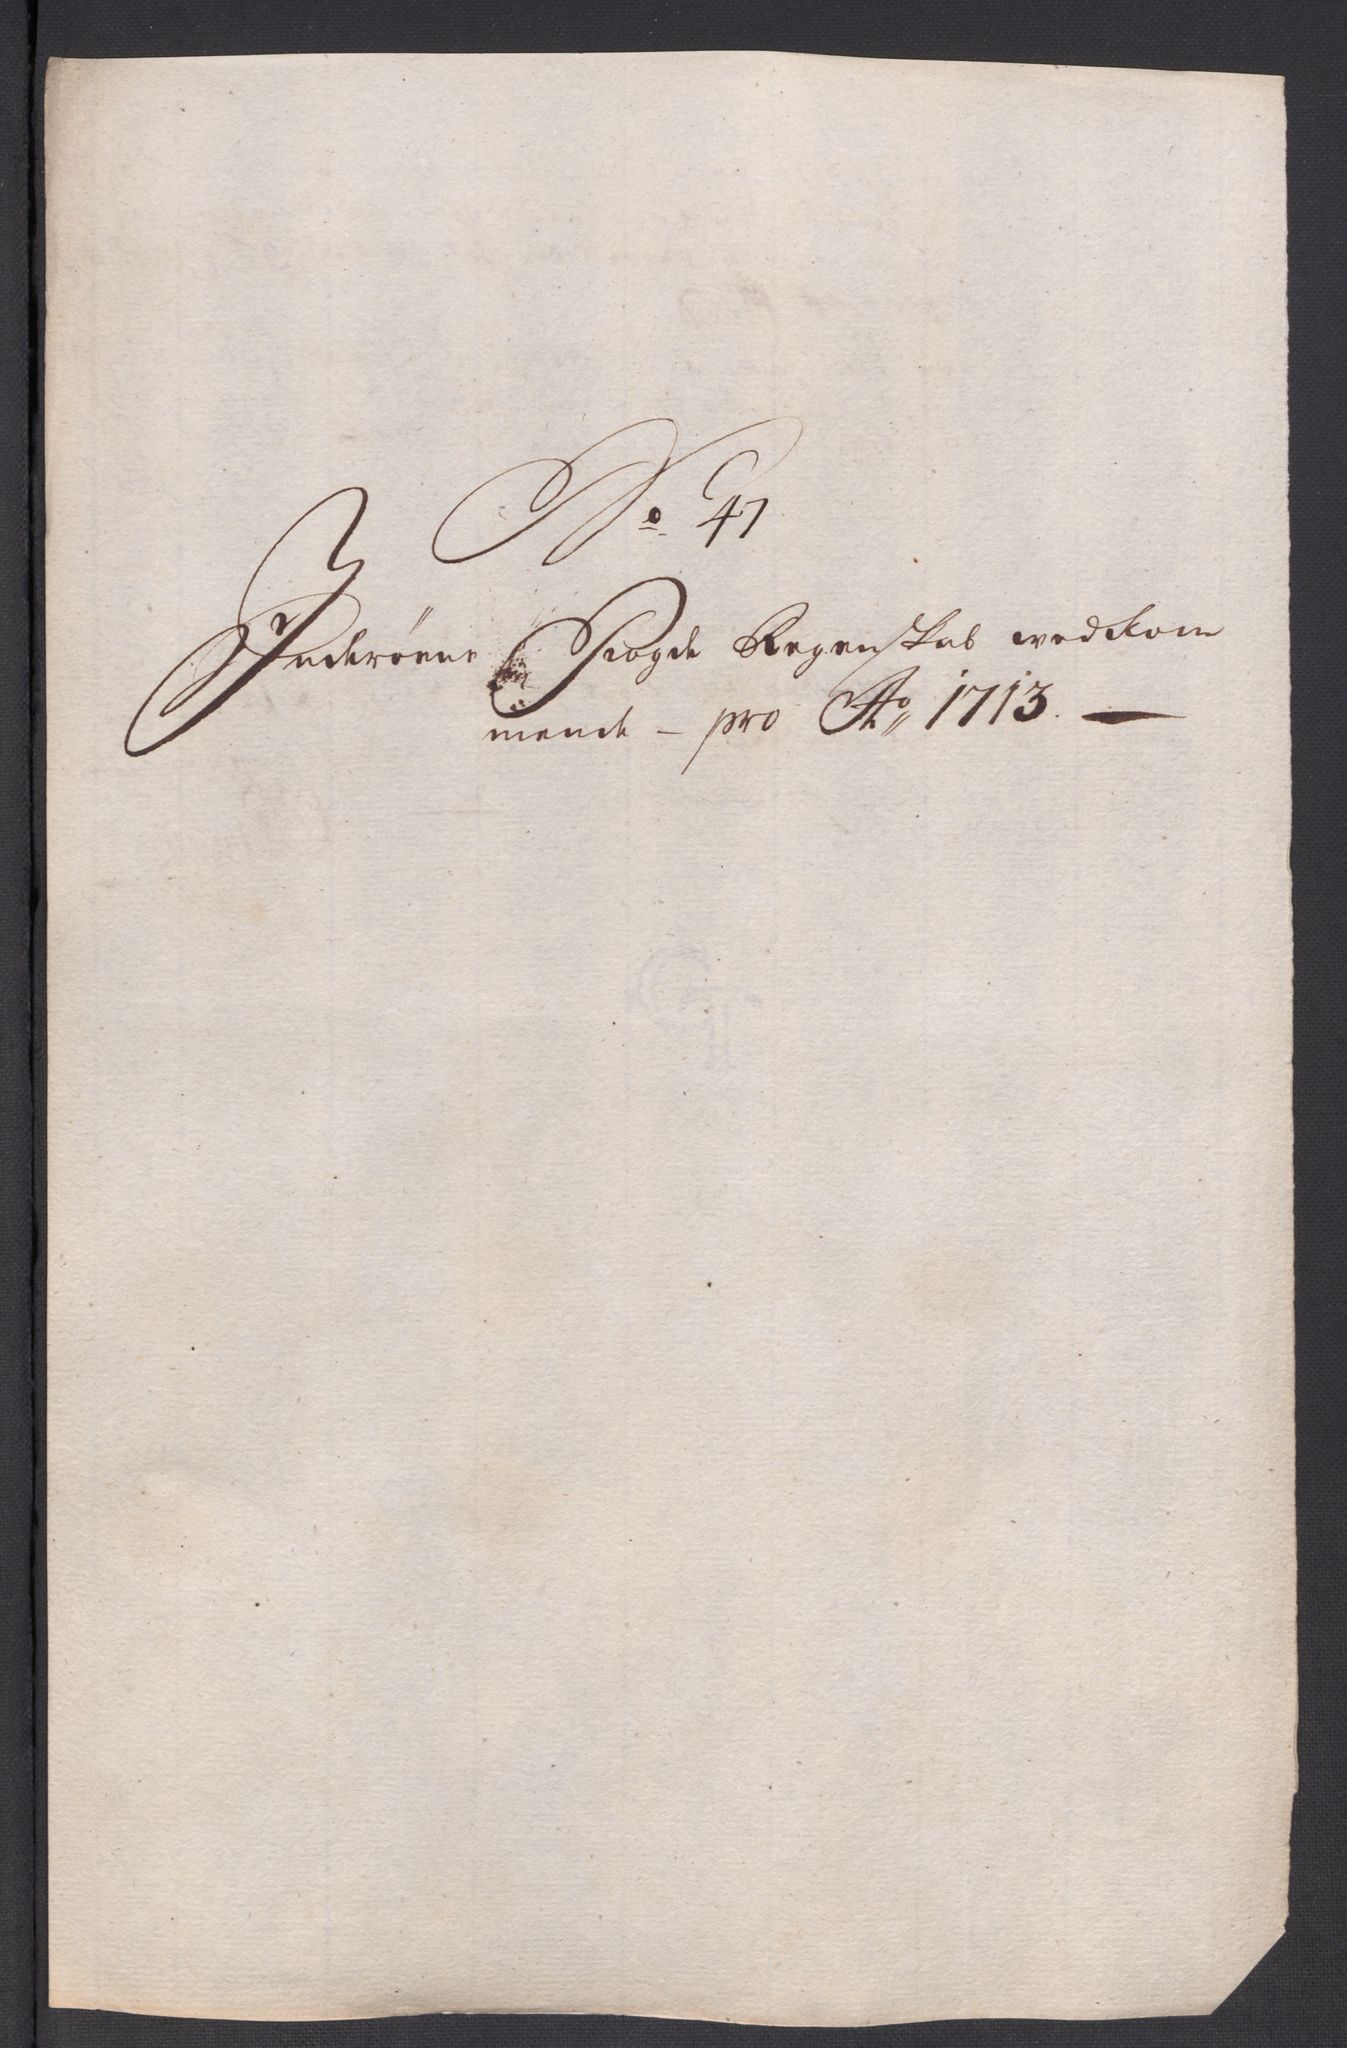 No 47
Inderöens Fogde Regenskab wedkom
mende - pro Ao 1713. -